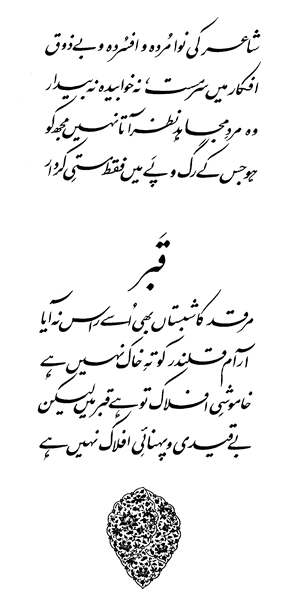 شاعر کی نوا مُردہ و افسُردہ و بے ذوق
افکار میں سرمست، نہ خوابیدہ نہ بیدار
وہ مردِ مجاہد نظر آتا نہیں مجھ کو
ہو جس کے رگ و پے میں فقط مستیِ کردار
قبر
مرقد کا شبستاں بھی اُسے راس نہ آیا
آرام قلندر کو تہِ خاک نہیں ہے
خاموشیِ افلاک تو ہے قبر میں لیکن
بے قیدی و پہنائیِ افلاک نہیں ہے